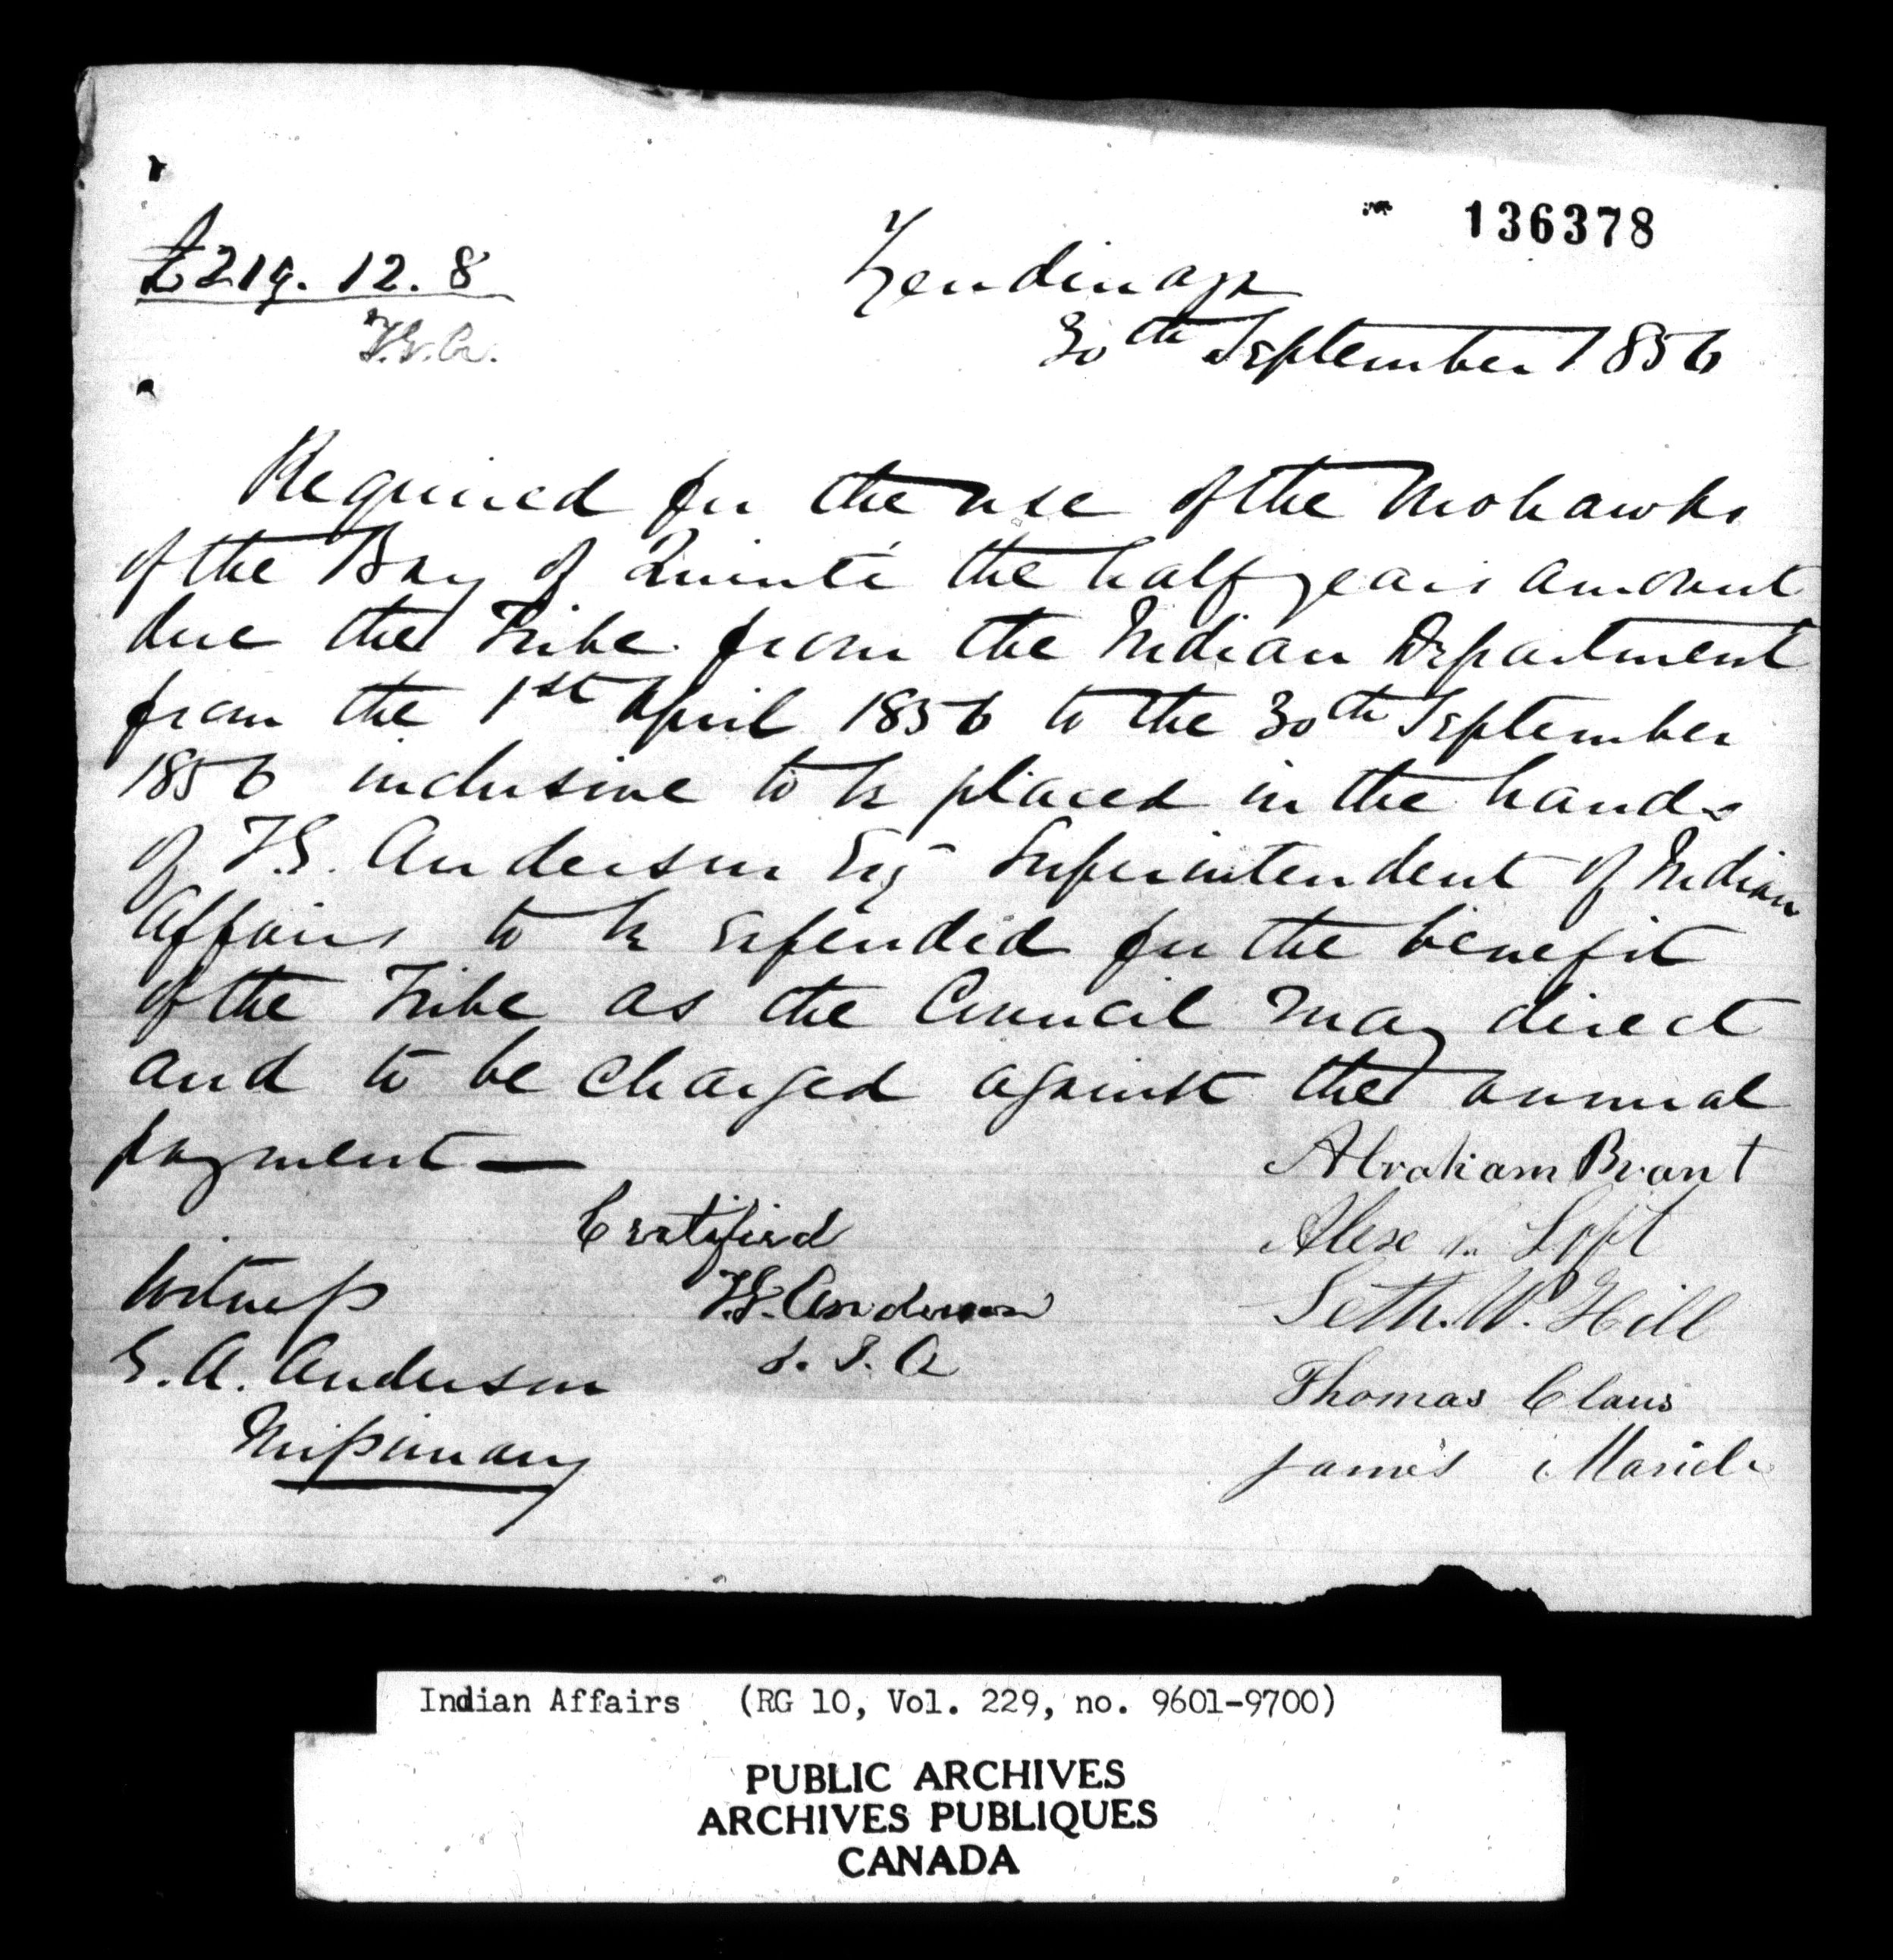 136378
£219. 12. 8
T.G.A.
Tyendinaga
30th September 1856
Required for the use of the Mohawks
of the Bay of Quinté the half years amount
due the Tribe from the Indian Department
from the 1st April 1856 to the 30th September
1856 inclusive to be placed in the hands
of T.G. Anderson Esq Superintendent of Indian
Affairs to be expended for the benefit
of the Tribe as the Council may direct
and to be charged against the annual
payment —
Abraham Brant
Certified
Alex Loft
Witness
T.G. Anderson
Seth. W. Hill
S. I. A
G. A. Anderson
Thomas Claus
Missionary
James
Indian Affairs (RG 10, Vol. 229, no. 9601-9700)
PUBLIC ARCHIVES
ARCHIVES PUBLIQUES
CANADA